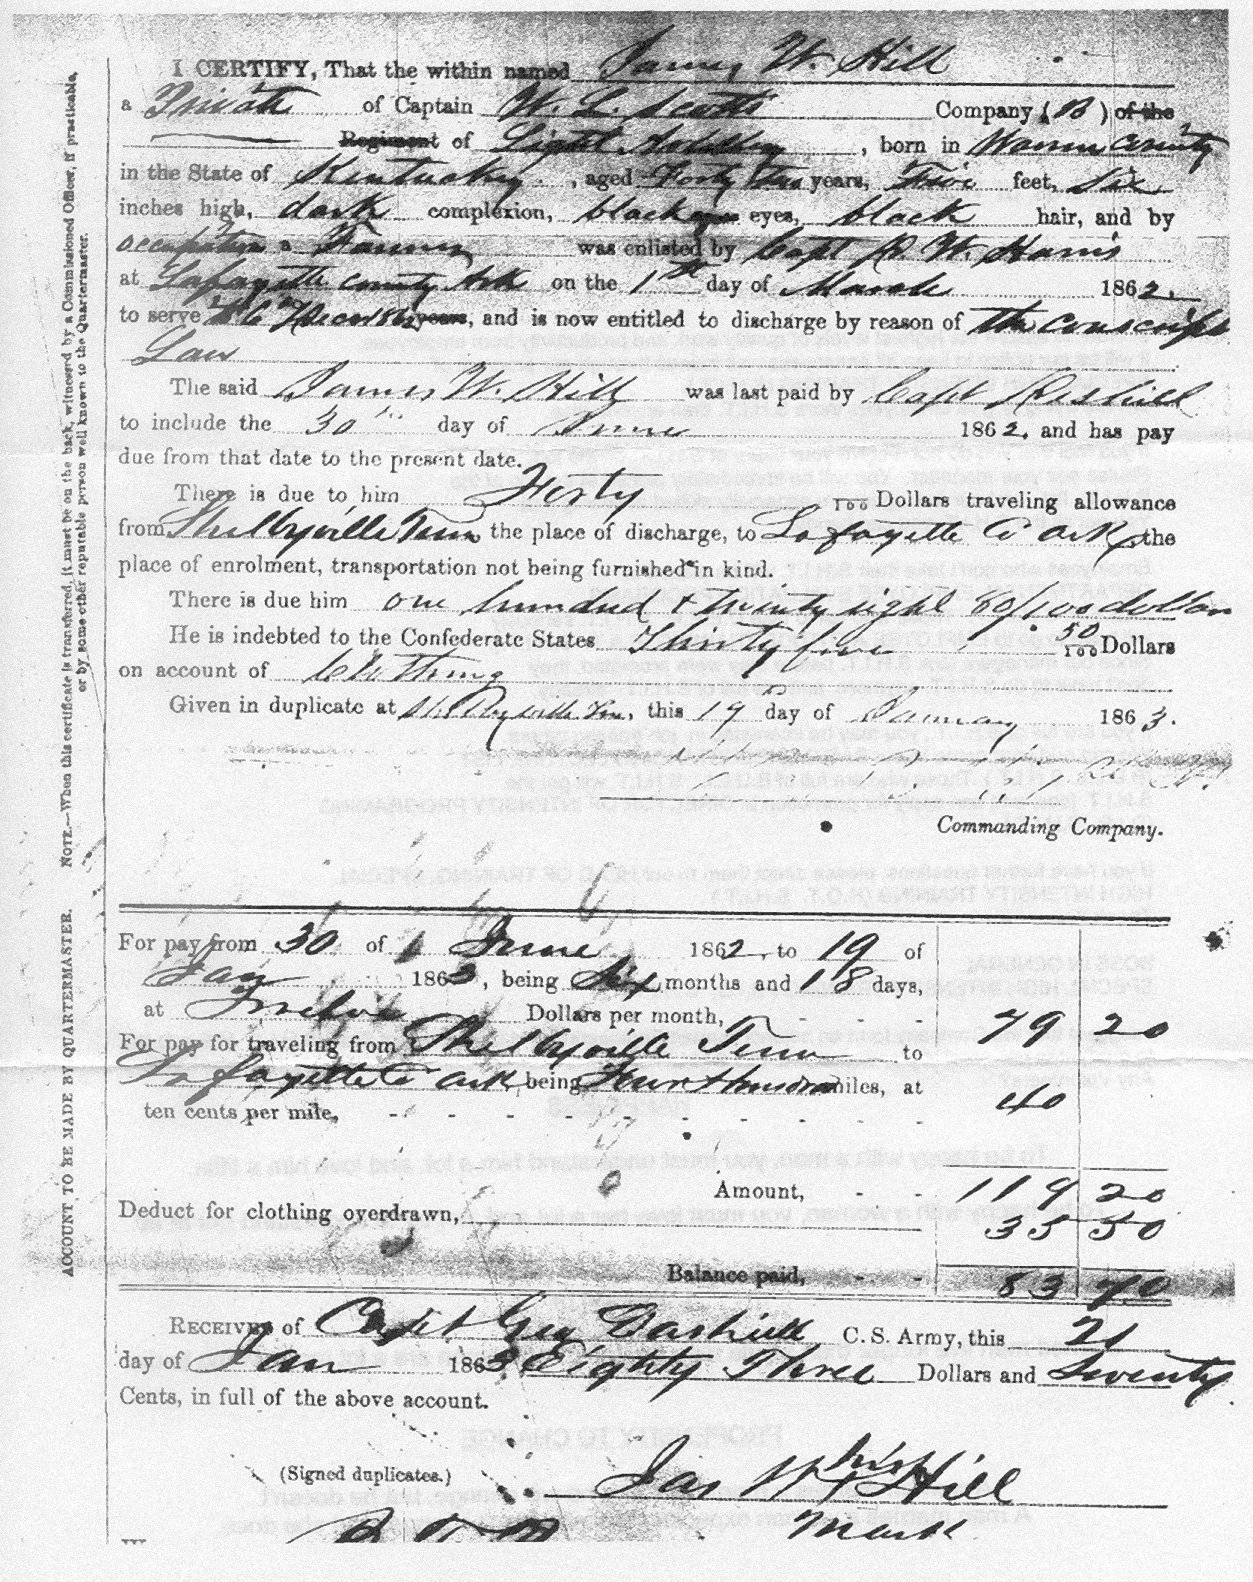 I CERTIFY, That the within named James W. Hill
a Private of Captain W. L. Scotts Company (B) of the
Regiment of Light Artillery, born in Warren County
in the State of Kentucky, aged Forty two years, Five feet, Six
inches high, dark complexion, black eyes, black hair, and by
occupation a Farmer was enlisted by Capt R. W. Harris
at Lafayette County Ark on the 1st day of March 1862.
to serve years, and is now entitled to discharge by reason of the conscript
Law
The said James W. Hill was last paid by Capt
to include the 30 day of June 1862, and has pay
due from that date to the present date.
There is due to him Forty 100 Dollars traveling allowance
from Shelbyville Tenn the place of discharge, to Lafayette Co Ark, the
place of enrolment, transportation not being furnished in kind.
There is due him one hundred & twenty eight 80/100 dollars
He is indebted to the Confederate States Thirty five 50/100 Dollars
on account of Clothing
Given in duplicate at Shelbyville Ten, this 19 day of January 1863.
Commanding Company.
For pay from 30 of June 1862, to 19 of
Jan 1863, being Six months and 18 days,
at Twelve Dollars per month, - - - - 79 20
For pay for traveling from Shelbyville Tenn to
Lafayette Co Ark, being Four Hundred miles, at
ten cents per mile, - - - - - - - - - - 40
Amount, - - 119 20
Deduct for clothing overdrawn, 35 50
Balance paid, - - 83 70
RECEIVED of Capt Geo Dashiell C. S. Army, this 21
day of Jan 1863 Eighty Three Dollars and Seventy
Cents, in full of the above account.
(Signed duplicates.) Jas W his X Hill
mark
NOTE.—When this certificate is transferred, it must be on the back, witnessed by a Commissioned Officer, if practicable,
or by some other reputable person well known to the Quartermaster.
ACCOUNT TO BE MADE BY QUARTERMASTER.